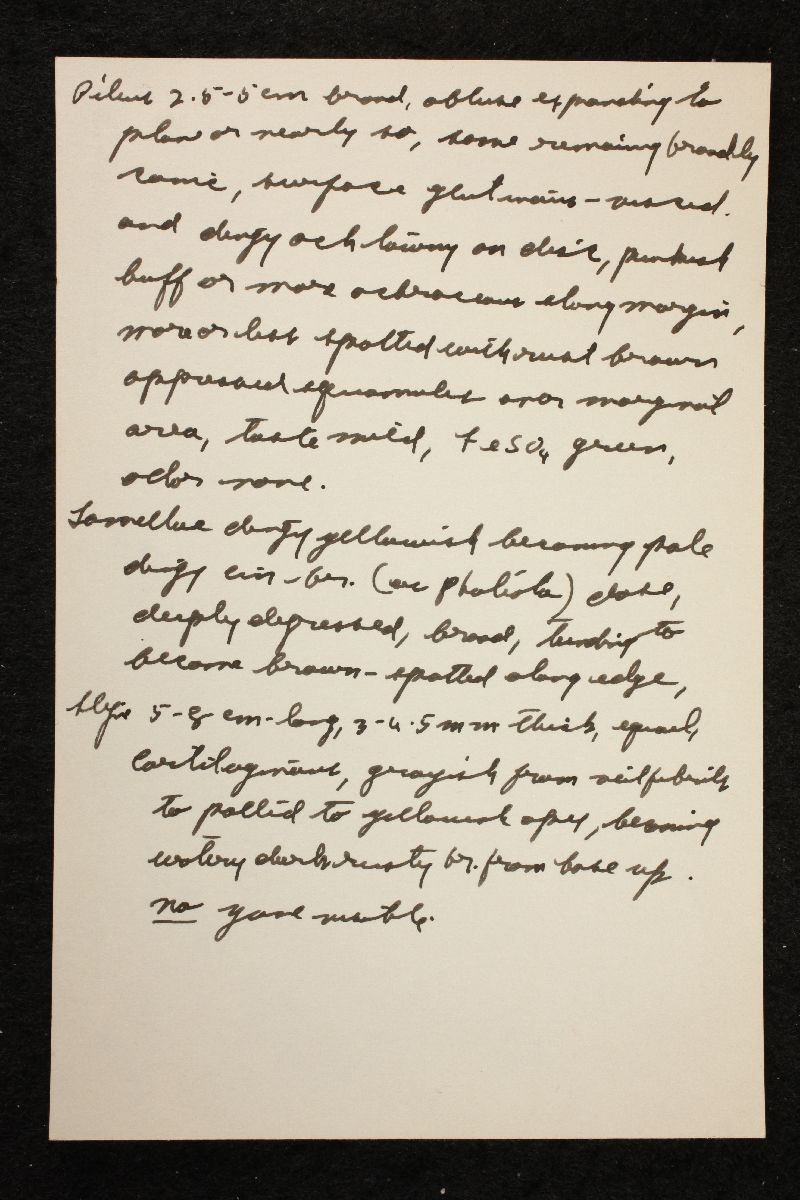 Pileus 2.5-5 cm broad, obtuse expanding to
plane or nearly so, some remaining broadly
conic, surface glutinous-viscid.
and dingy och tawny on disc, pinkish
buff or more ochraceous along margin,
more or less spotted with rust brown
appressed squamules over marginal
area, taste mild, FeSO4 green,
odor none.
Lamellae dingy yellowish becoming pale
dingy cin-br. (as Pholiota) close,
deeply depressed, broad, tending to
become brown-spotted along edge,
Stipe 5-8 cm long, 3-4.5 mm thick, equal,
Cartilaginous, grayish from veil fibrils
to pallid to yellowish apex, becoming
watery dark rusty br. from base up.
no zone visible.